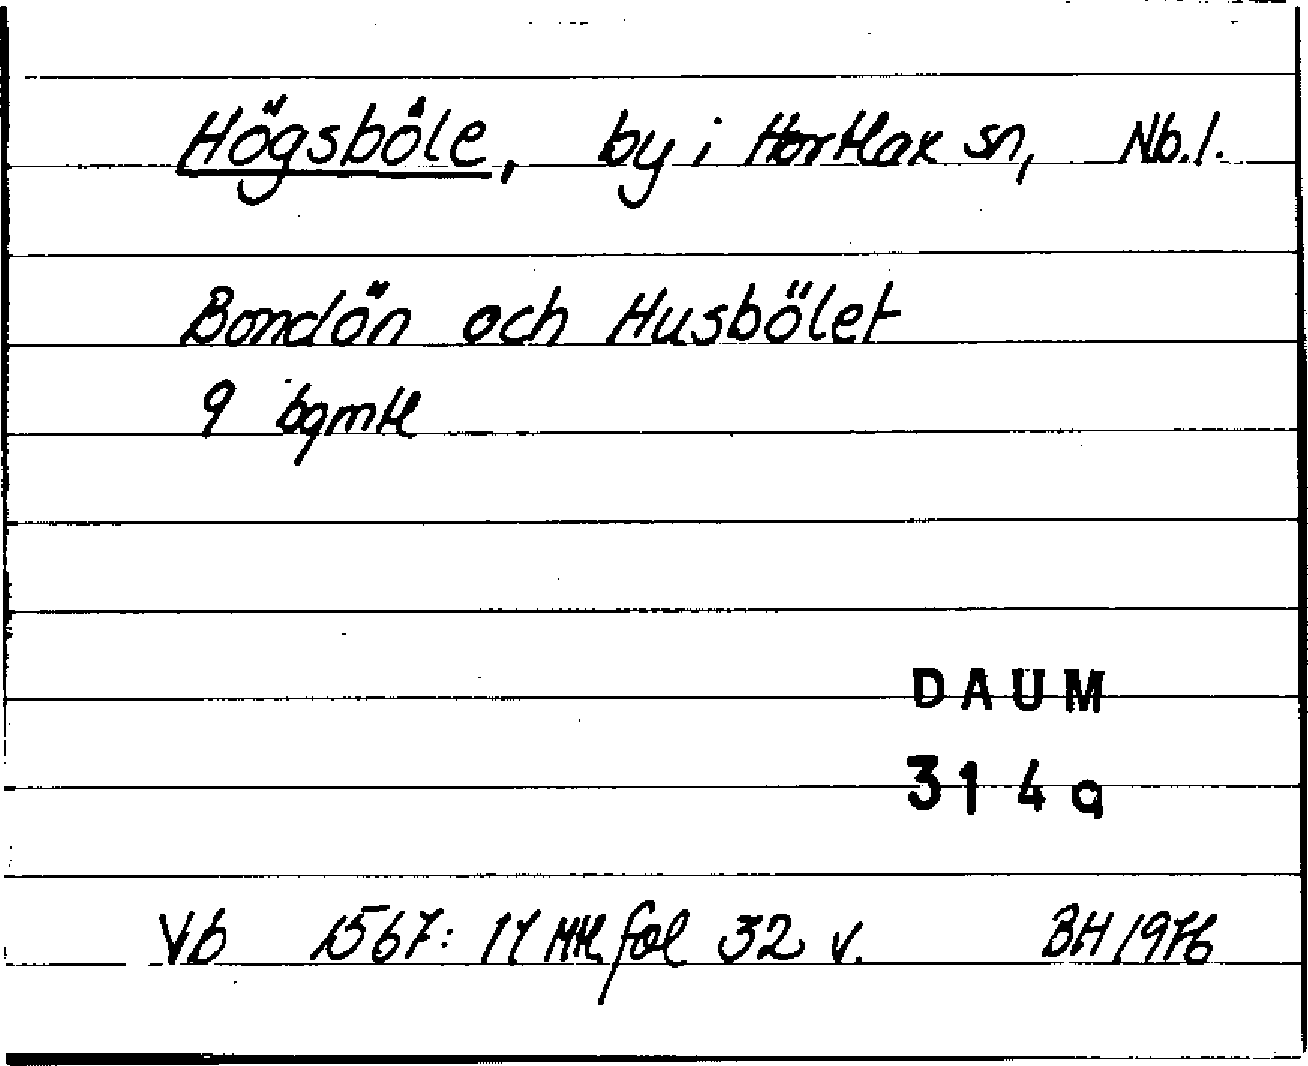 Högsböle, by i Hortlax sn, Nb.l.
Bondön och Husbölet
9 bgmtl
DAUM
314a
Vb 1567: 11 fol 32 v. BH 1976